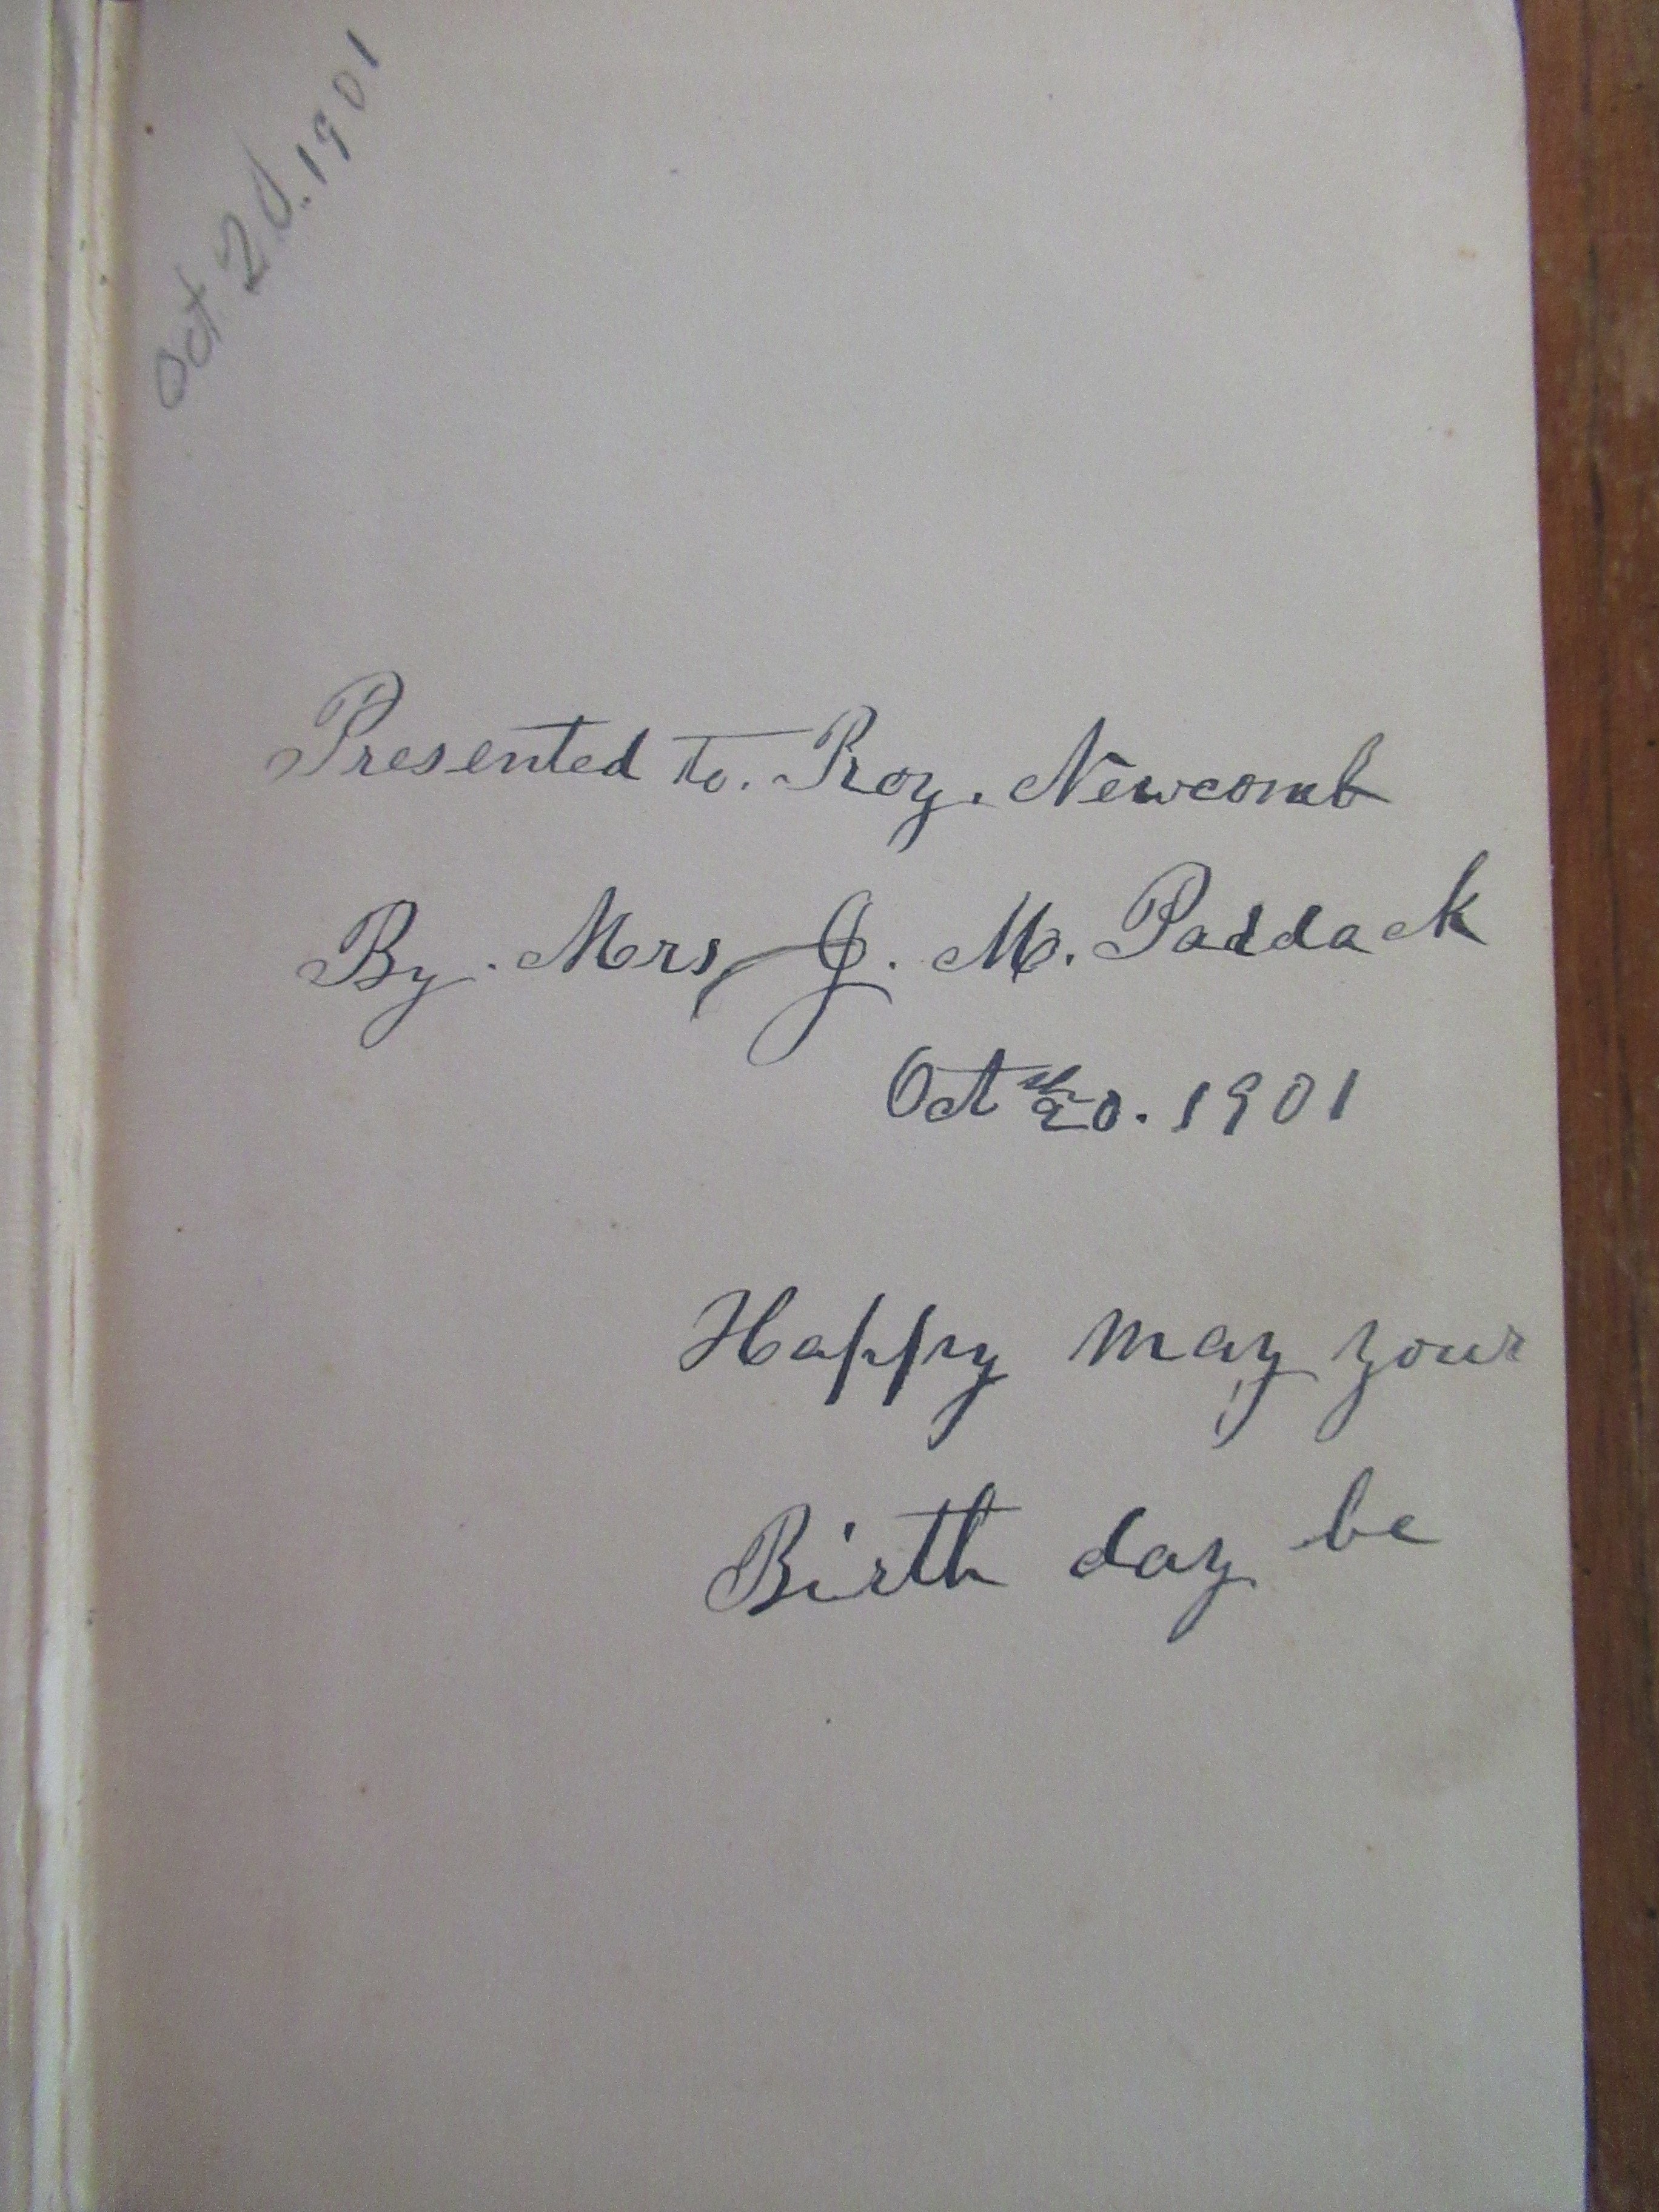 Oct 20. 1901
Presented to. Roy. Newcomb
By. Mrs, J. M. Paddack
Oct th 20. 1901
Happy may your
Birth day be